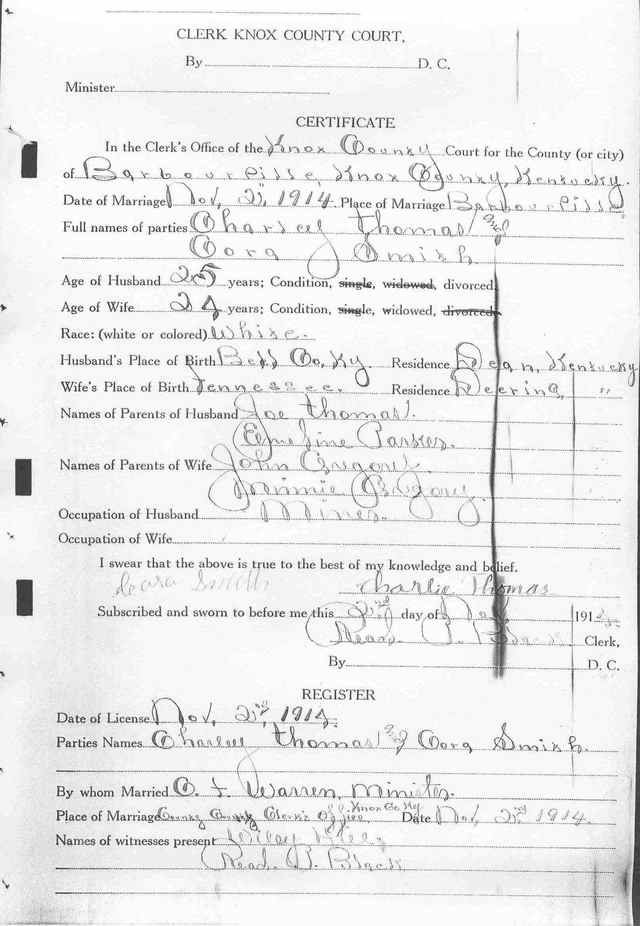 CLERK KNOX COUNTY COURT,
By D. C.
Minister
CERTIFICATE
In the Clerk's Office of the Knox County Court for the County (or city)
of Barbourville, Knox County, Kentucky.
Date of Marriage Nov, 2nd, 1914. Place of Marriage Barbourville
Full names of parties Charley Thomas and
Cora Smith
Age of Husband 25 years; Condition, single, widowed, divorced.
Age of Wife 24 years; Condition, single, widowed, divorced.
Race: (white or colored) White.
Husband's Place of Birth Bell Co, Ky. Residence Dean, Kentucky
Wife's Place of Birth Tennessee. Residence Deering, "
Names of Parents of Husband Joe Thomas.
Parker.
Names of Parents of Wife John Gregory
Minnie Gregory.
Occupation of Husband Miner.
Occupation of Wife
I swear that the above is true to the best of my knowledge and belief.
Smith Charlie Thomas
Subscribed and sworn to before me this 2nd day of Nov, 191
Read P. Black Clerk,
By D. C.
REGISTER
Date of License Nov, 2nd, 1914.
Parties Names Charley Thomas and Cora Smith.
By whom Married Warren, Minister.
Place of Marriage County Clerk's Office Knox Co Ky Date Nov, 2nd, 1914.
Names of witnesses present Wiley
Read P. Black